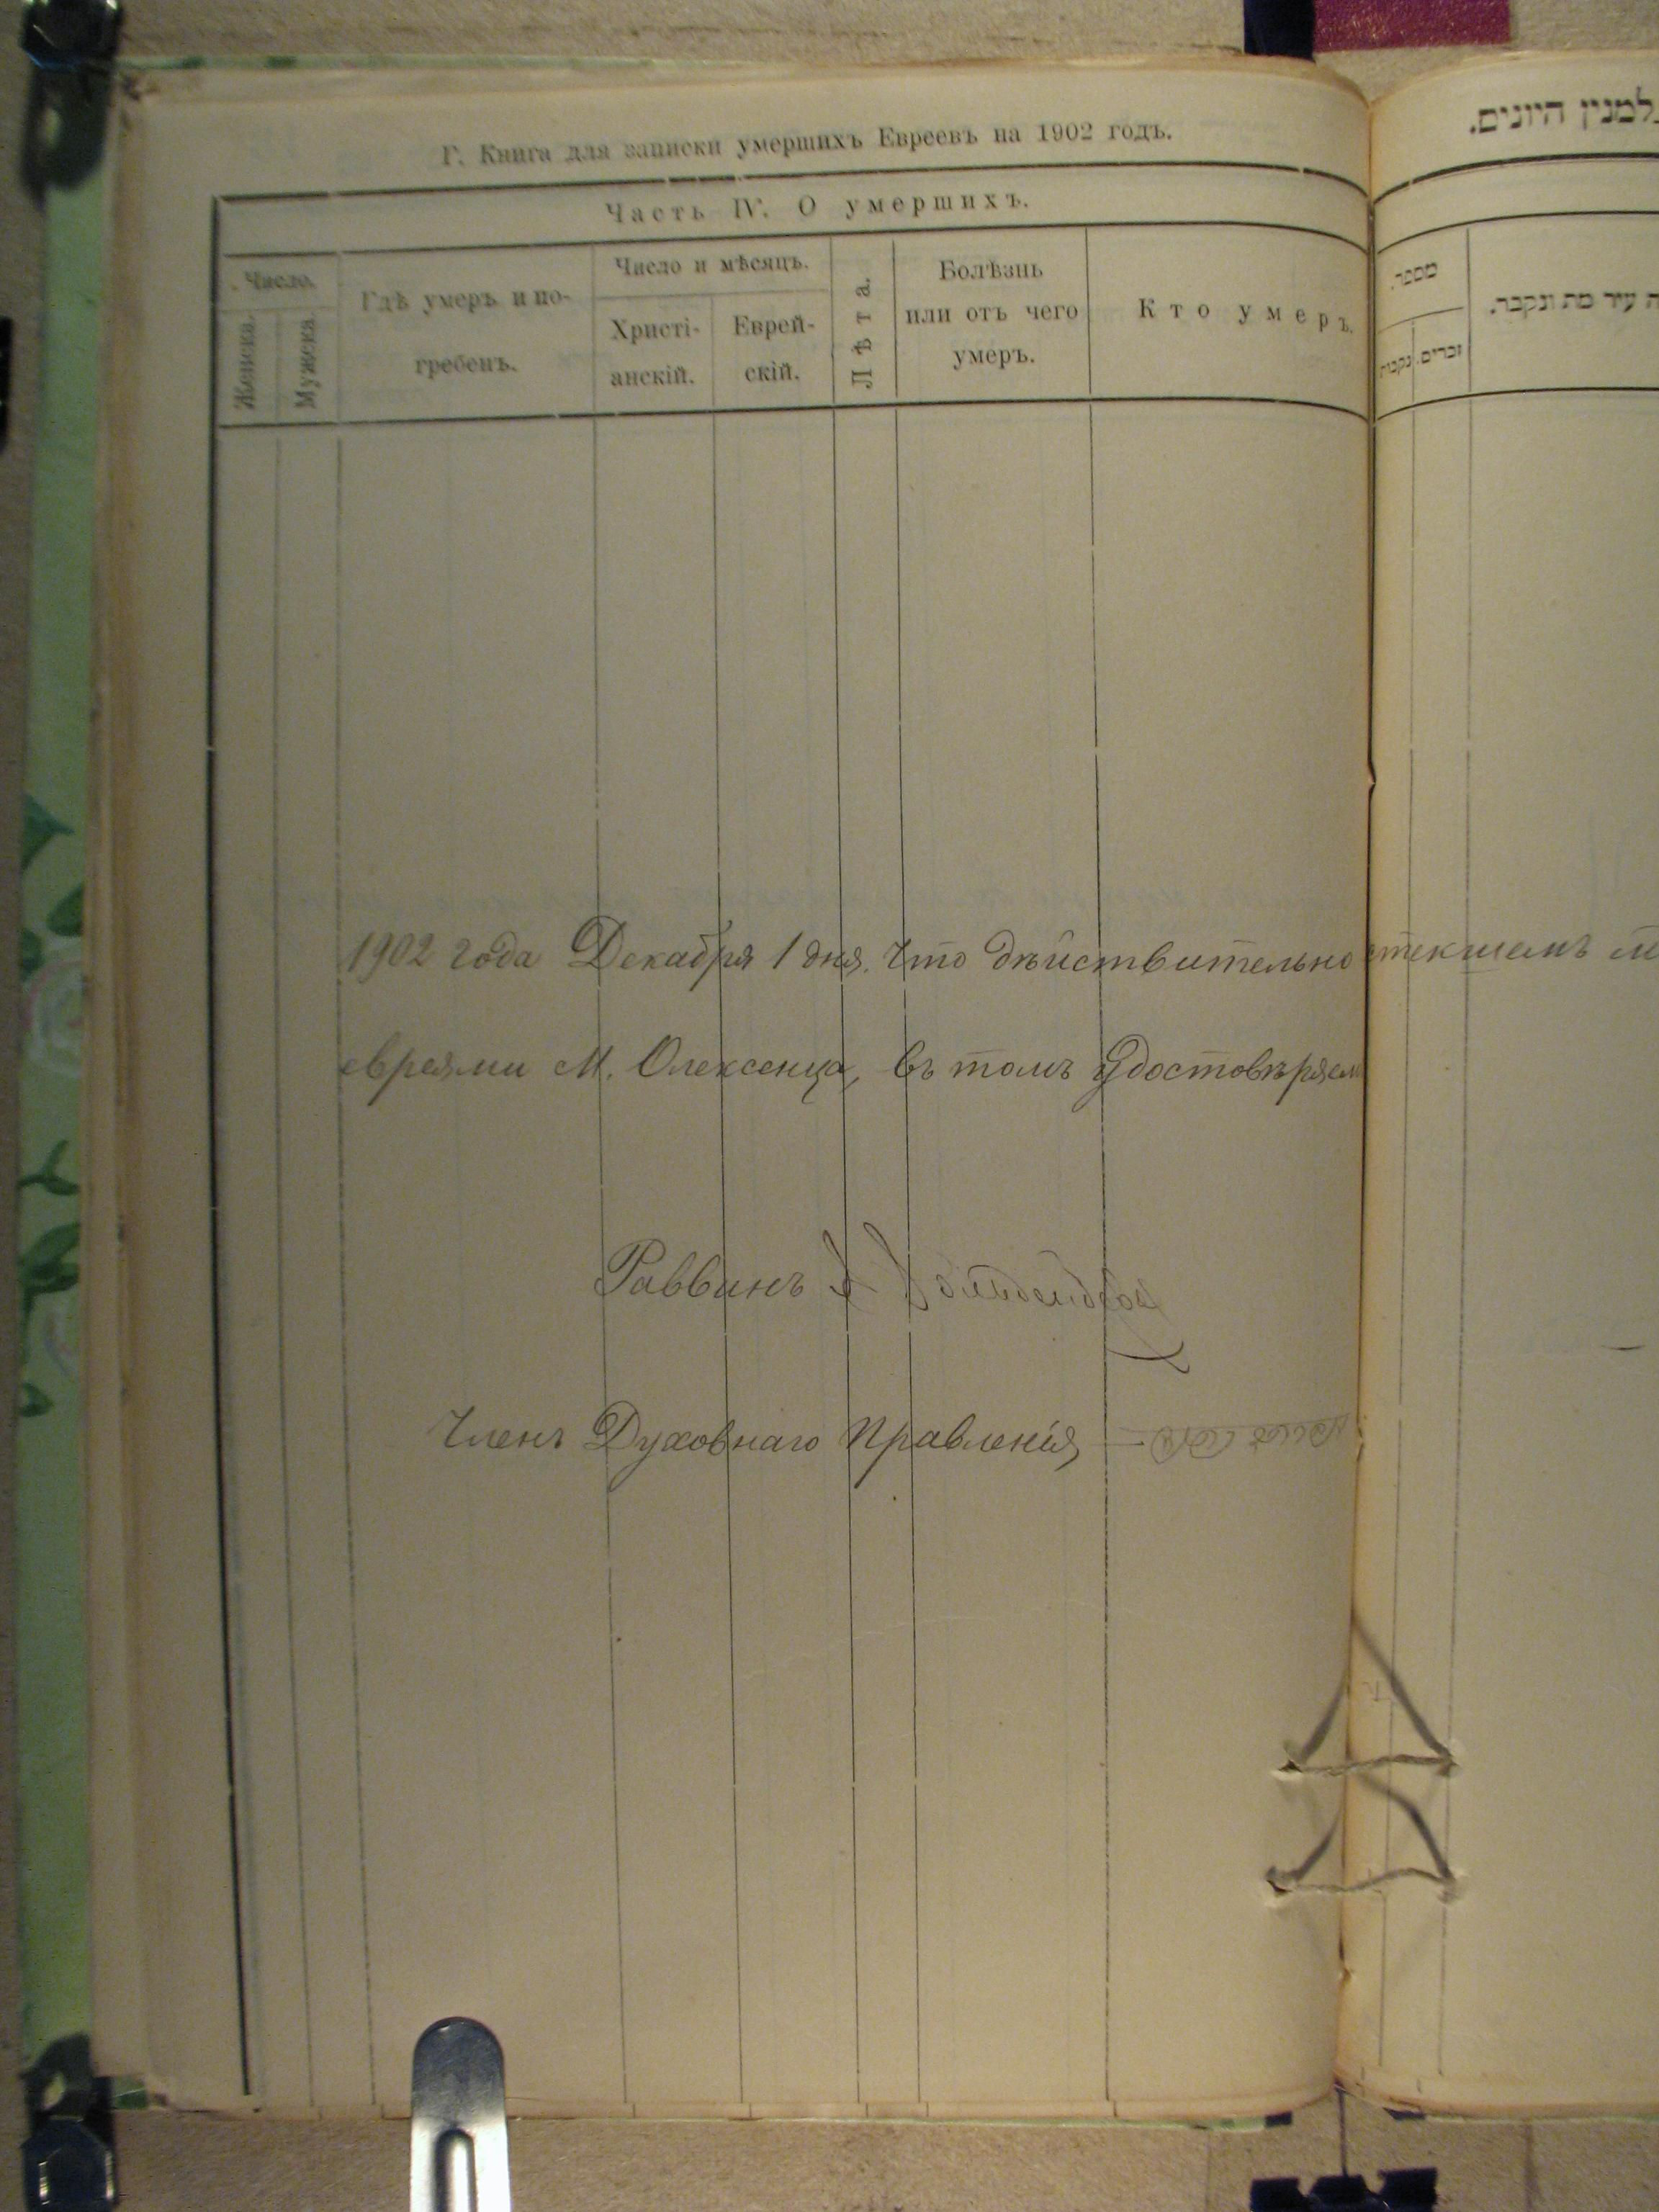 Г. Книга для записки умершихъ Евреевъ на 1902 годъ.
Часть IV. О умершихъ.
Число.
Женска.
Мужска.
Гдѣ умеръ и по-
гребенъ.
Число и мѣсяцъ.
Христі-
анскій.
Еврей-
скій.
Лѣта.
Болѣзнь
или отъ чего
умеръ.
Кто умеръ.
למנין היונים.
מספר.
נקבות
זכרים.
עיר מת ונקבר.
1902 года Декабря 1 дня. Что дѣйствительно стекшемъ
евреями М. Олексенца, въ томъ удостовѣряем
Раввинъ
Членъ Духовнаго Правленія